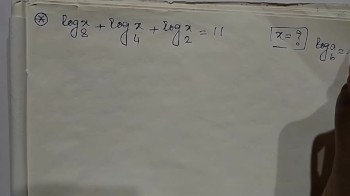 ⊛ log₈x + log₄x + log₂x = 11 x = ?
logₐ